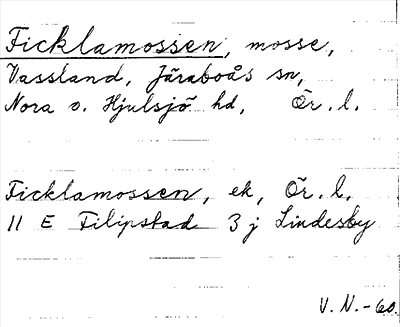 Ficklamossen, mosse,
Vassland, Järaboås sn,
Nora o. Hjulsjö hd, Ör. l.
Ficklamossen, ek, Ör. l.
11 E Filipstad 3 j Lindesby
V. N. -60.